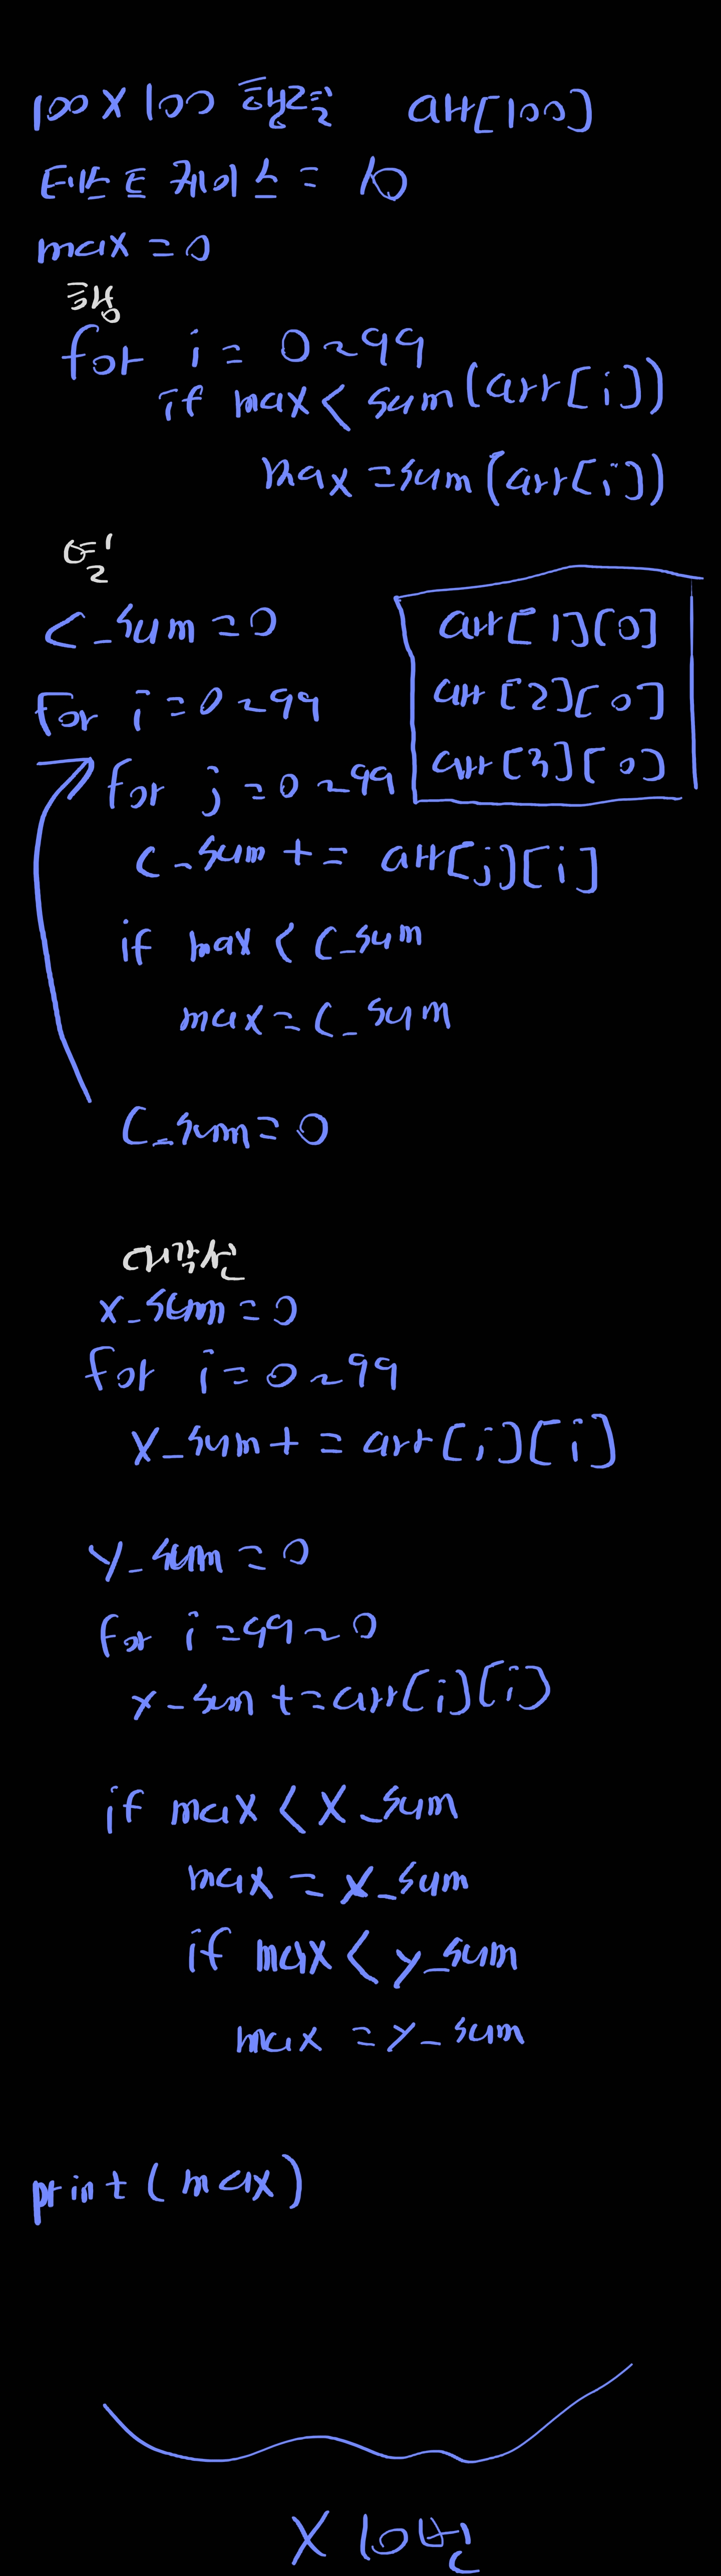 100 X 100 행렬 arr[100]
테스트 케이스 = 10
max = 0
행
for i = 0 ~ 99
if max < sum(arr[i])
max = sum(arr[i])
열
c_sum = 0
for i = 0 ~ 99
for j = 0 ~ 99
arr[1][0]
arr[2][0]
arr[3][0]
c_sum += arr[j][i]
if max < c_sum
max = c_sum
c_sum = 0
대각선
x_sum = 0
for i = 0 ~ 99
x_sum += arr[i][i]
y_sum = 0
for i = 99 ~ 0
x_sum += arr[i][i]
if max < x_sum
max = x_sum
if max < y_sum
max = y_sum
print(max)
X 10번